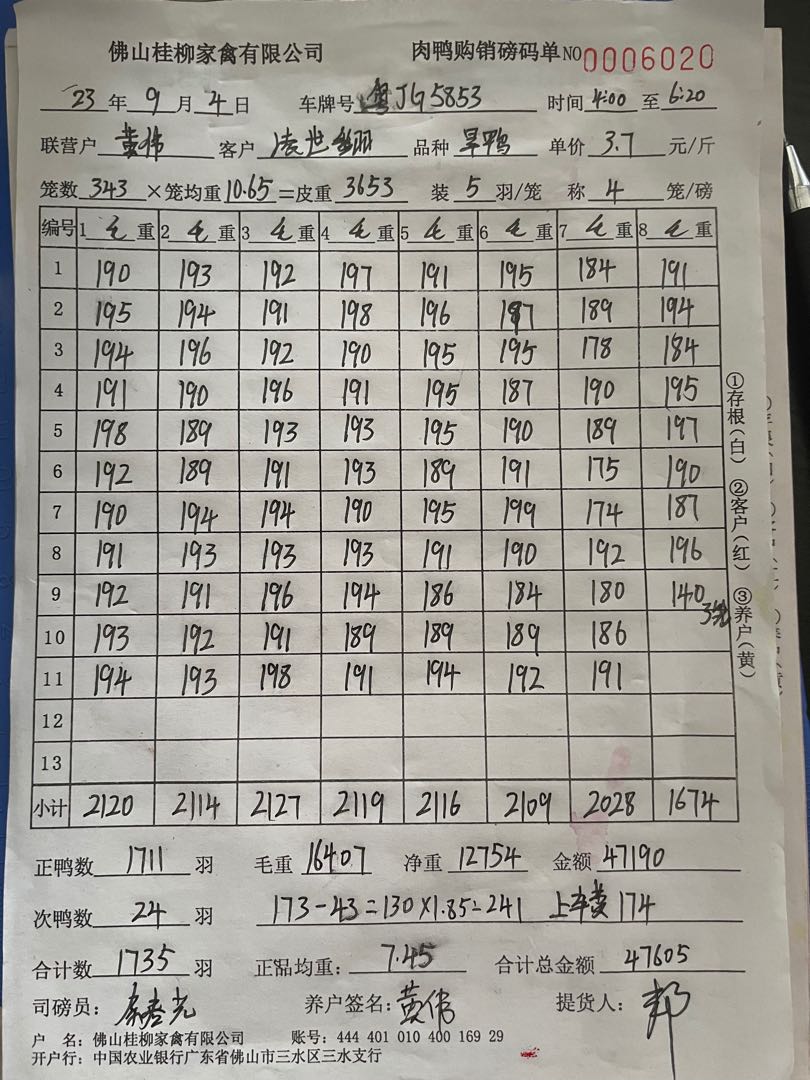 佛山桂柳家禽有限公司 肉鸭购销磅码单 NO 0006020
23年9月4日 车牌号 粤JG5853 时间 4:00 至 6:20
联营户 黄伟 客户 凌世 品种 旱鸭 单价 3.7 元/斤
笼数 343 ×笼均重 10.65 =皮重 3653 装 5 羽/笼 称 4 笼/磅
编号 1 毛 重 2 毛 重 3 毛 重 4 毛 重 5 毛 重 6 毛 重 7 毛 重 8 毛 重
1 190 193 192 197 191 195 184 191
2 195 194 191 198 196 187 189 194
3 194 196 192 190 195 195 178 184
4 191 190 196 191 195 187 190 195
5 198 189 193 193 195 190 189 197
6 192 189 191 193 189 191 175 190
7 190 194 194 190 195 199 174 187
8 191 193 193 193 191 190 192 196
9 192 191 196 194 186 184 180 140
10 193 192 191 189 189 189 186
11 194 193 198 191 194 192 191
12
13
小计 2120 2114 2127 2119 2116 2109 2028 1674
①存根(白) ②客户(红) ③养户(黄)
正鸭数 1711 羽 毛重 16407 净重 12754 金额 47190
次鸭数 24 羽 173-43=130×1.85=241 上车费 174
合计数 1735 羽 正品均重: 7.45 合计总金额 47605
司磅员: 养户签名: 黄伟 提货人: 邦
户 名: 佛山桂柳家禽有限公司 账号: 444 401 010 400 169 29
开户行: 中国农业银行广东省佛山市三水区三水支行